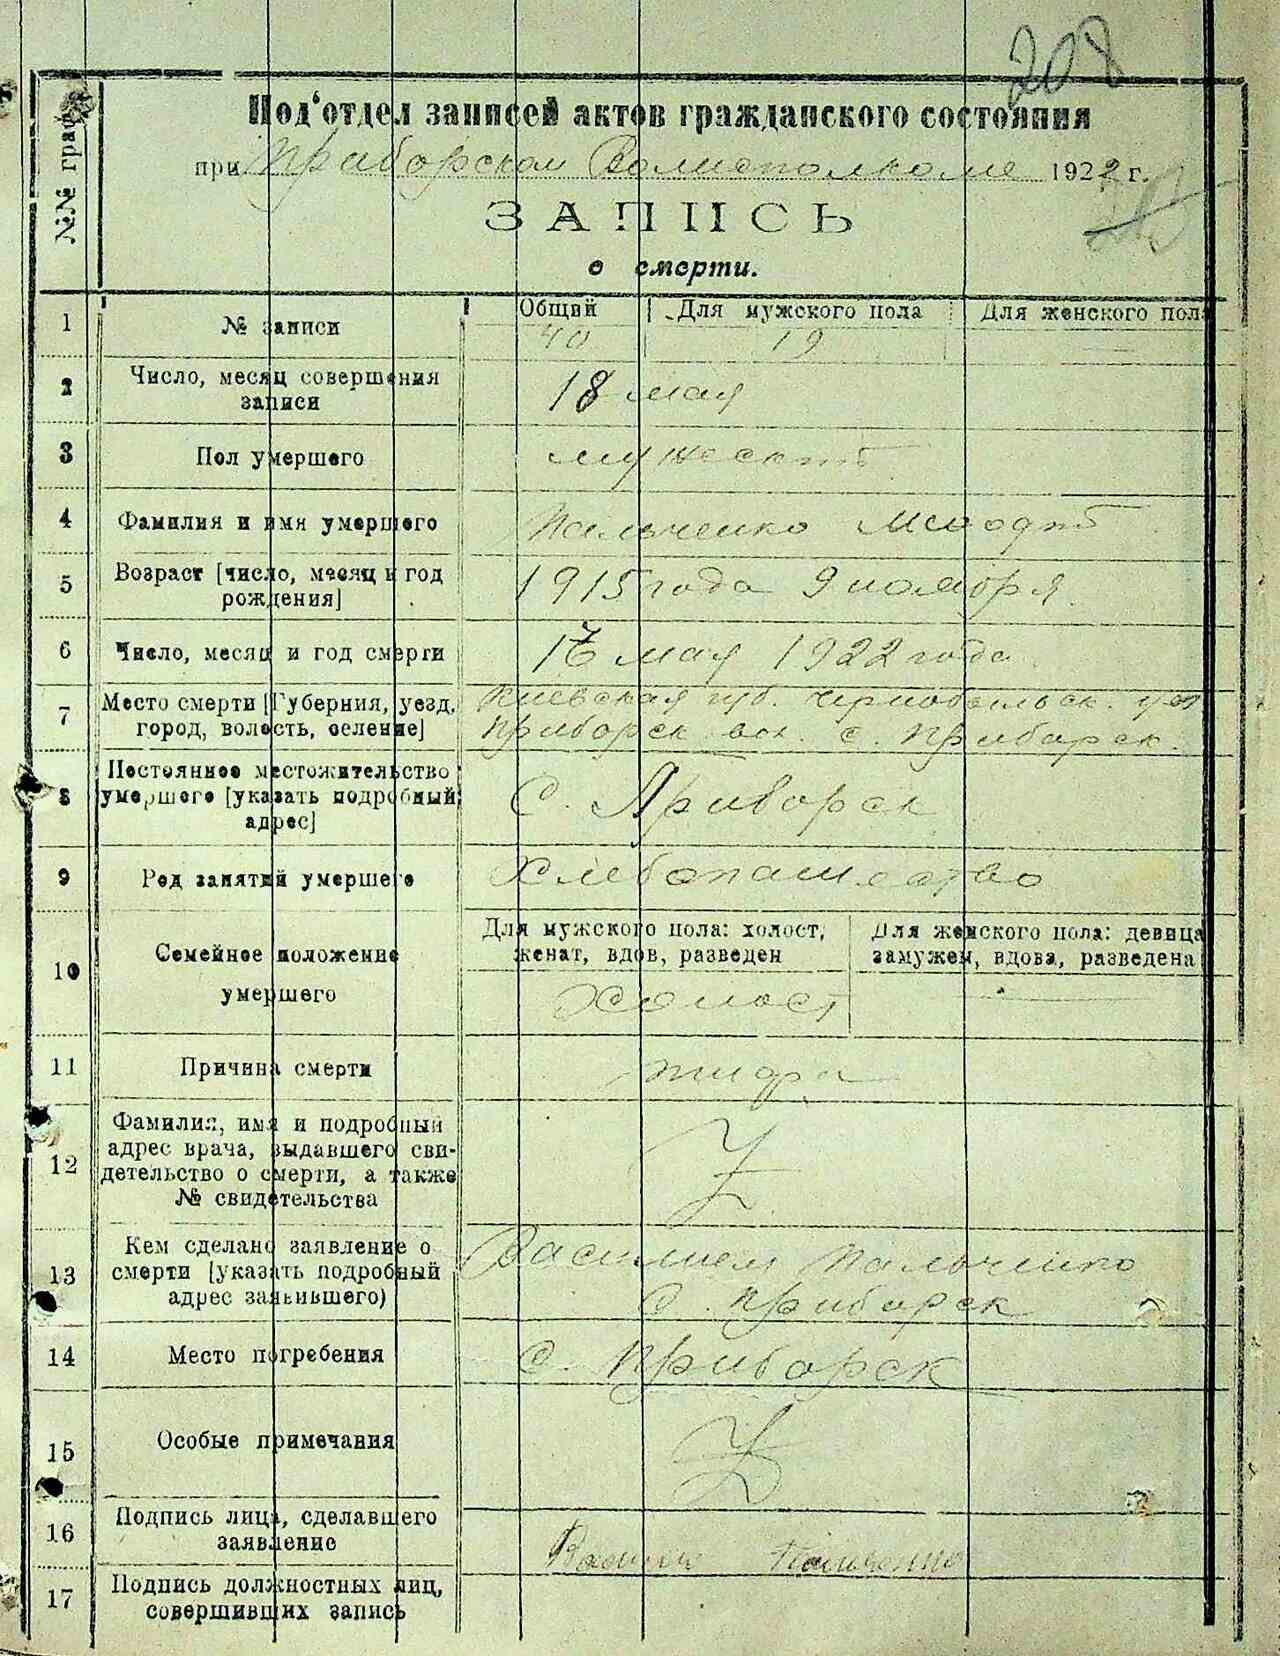 208
Под'отдел записей актов гражданского состояния
при Приборском Волисполкоме 1922 г.
ЗАПИСЬ
о смерти.
№№ граф
1 № записи Общий Для мужского пола Для женского пола
40 19
2 Число, месяц совершения записи 18 мая
3 Пол умершего мужеский
4 Фамилия и имя умершего Пальченко
5 Возраст [число, месяц и год рождения] 1915 года 9 ноября
6 Число, месяц и год смерти 17 мая 1922 года
7 Место смерти [Губерния, уезд, город, волость, селение] Киевская губ. Чернобыльск. уез
Приборск. вол. с. Приборск.
8 Постоянное местожительство умершего [указать подробный адрес] С. Приборск
9 Род занятий умершего Хлебопашество
10 Семейное положение умершего
Для мужского пола: холост, женат, вдов, разведен
Для женского пола: девица замужем, вдова, разведена
Холост
11 Причина смерти
12 Фамилия, имя и подробный адрес врача, выдавшего свидетельство о смерти, а также № свидетельства
13 Кем сделано заявление о смерти [указать подробный адрес заявившего) Василием Пальченко
С. Приборск
14 Место погребения С. Приборск
15 Особые примечания
16 Подпись лица, сделавшего заявление Василий Пальченко
17 Подпись должностных лиц, совершивших запись